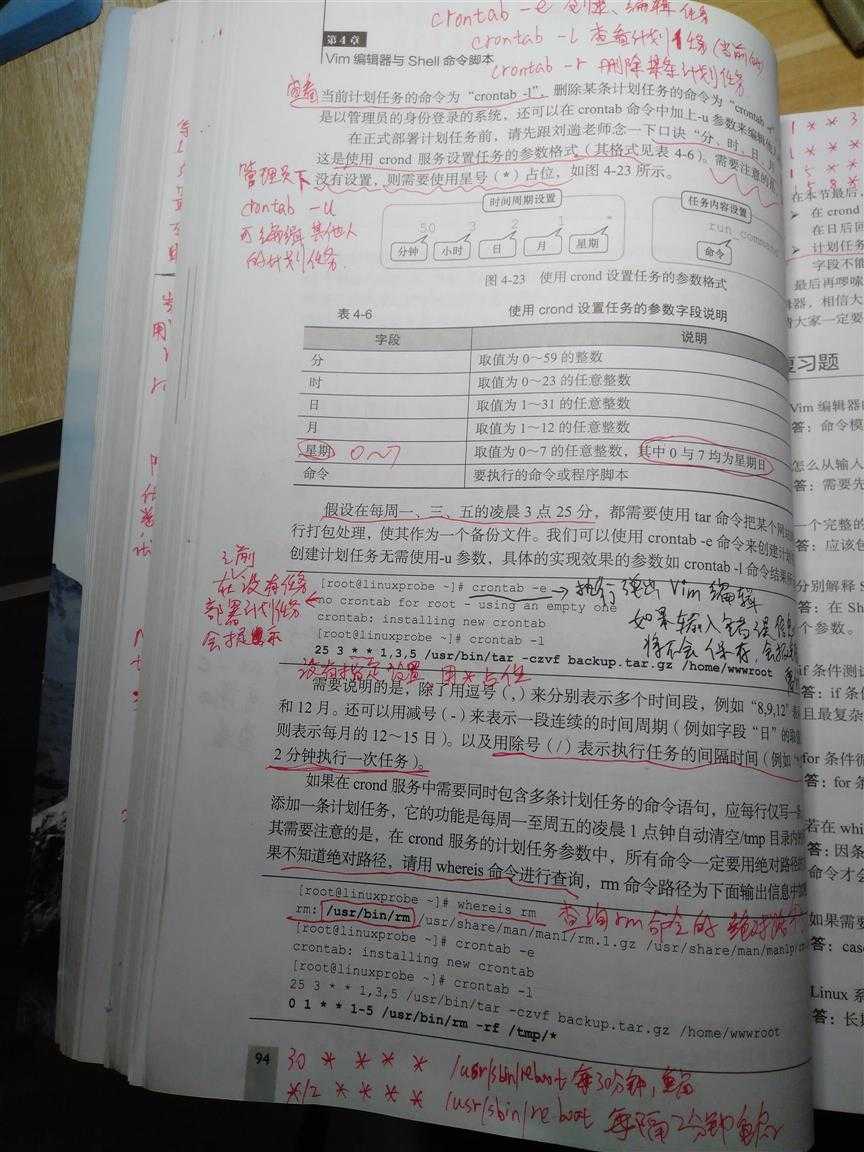 crontab -e 创建、编辑 任务
第4章
crontab -l 查看计划任务(当前的)
Vim 编辑器与 Shell 命令脚本
crontab -r 删除某条计划任务
查看
当前计划任务的命令为“crontab -l”，删除某条计划任务的命令为“crontab -r”
是以管理员的身份登录的系统，还可以在 crontab 命令中加上-u 参数来编辑他
在正式部署计划任务前，请先跟刘遄老师念一下口诀“分、时、日、月
这是使用 crond 服务设置任务的参数格式（其格式见表 4-6）。需要注意的是
没有设置，则需要使用星号（*）占位，如图 4-23 所示。
管理员下
crontab -u
可编辑其他人
的计划任务.
时间周期设置
任务内容设置
50 3 2 1 *
run command
分钟 小时 日 月 星期
命令
图 4-23 使用 crond 设置任务的参数格式
表 4-6 使用 crond 设置任务的参数字段说明
字段 说明
分 取值为 0～59 的整数
时 取值为 0～23 的任意整数
日 取值为 1～31 的任意整数
月 取值为 1～12 的任意整数
星期 0～7 取值为 0～7 的任意整数，其中 0 与 7 均为星期日
命令 要执行的命令或程序脚本
假设在每周一、三、五的凌晨 3 点 25 分，都需要使用 tar 命令把某个网站
行打包处理，使其作为一个备份文件。我们可以使用 crontab -e 命令来创建计划
创建计划任务无需使用-u 参数，具体的实现效果的参数如 crontab -l 命令结果所
之前
在没有任务
部署计划任务
会提示
[root@linuxprobe ~]# crontab -e
执行弹出 Vim 编辑
no crontab for root - using an empty one
如果输入错误信息
crontab: installing new crontab
将不会保存,
[root@linuxprobe ~]# crontab -l
25 3 * * 1,3,5 /usr/bin/tar -czvf backup.tar.gz /home/wwwroot
没有指定设置 用*占位
需要说明的是，除了用逗号（,）来分别表示多个时间段，例如“8,9,12”表
和 12 月。还可以用减号（-）来表示一段连续的时间周期（例如字段“日”的取值
则表示每月的 12～15 日）。以及用除号（/）表示执行任务的间隔时间（例如“*/
2 分钟执行一次任务）。
如果在 crond 服务中需要同时包含多条计划任务的命令语句，应每行仅写一条
添加一条计划任务，它的功能是每周一至周五的凌晨 1 点钟自动清空/tmp 目录内的
其需要注意的是，在 crond 服务的计划任务参数中，所有命令一定要用绝对路径的
果不知道绝对路径，请用 whereis 命令进行查询，rm 命令路径为下面输出信息中加
[root@linuxprobe ~]# whereis rm
查询rm命令的 绝对路径
rm: /usr/bin/rm /usr/share/man/man1/rm.1.gz /usr/share/man/man1p/rm
[root@linuxprobe ~]# crontab -e
crontab: installing new crontab
[root@linuxprobe ~]# crontab -l
25 3 * * 1,3,5 /usr/bin/tar -czvf backup.tar.gz /home/wwwroot
0 1 * * 1-5 /usr/bin/rm -rf /tmp/*
94
30 * * * * /usr/sbin/reboot 每30分钟,重启
*/2 * * * * /usr/sbin/reboot 每隔2分钟重启
在本节最后,
在 crond
在日后回
计划任务
字段不能
最后再啰嗦
器，相信大
大家一定要
复习题
Vim 编辑器的
答：命令模
怎么从输入
答：需要先
一个完整的
答：应该包
分别解释 S
答：在 Sh
个参数。
if 条件测试
答：if 条件
且最复杂
for 条件循
答：for 条
若在 whi
答：因条
命令才会
如果需要
答：case
Linux 系
答：长期